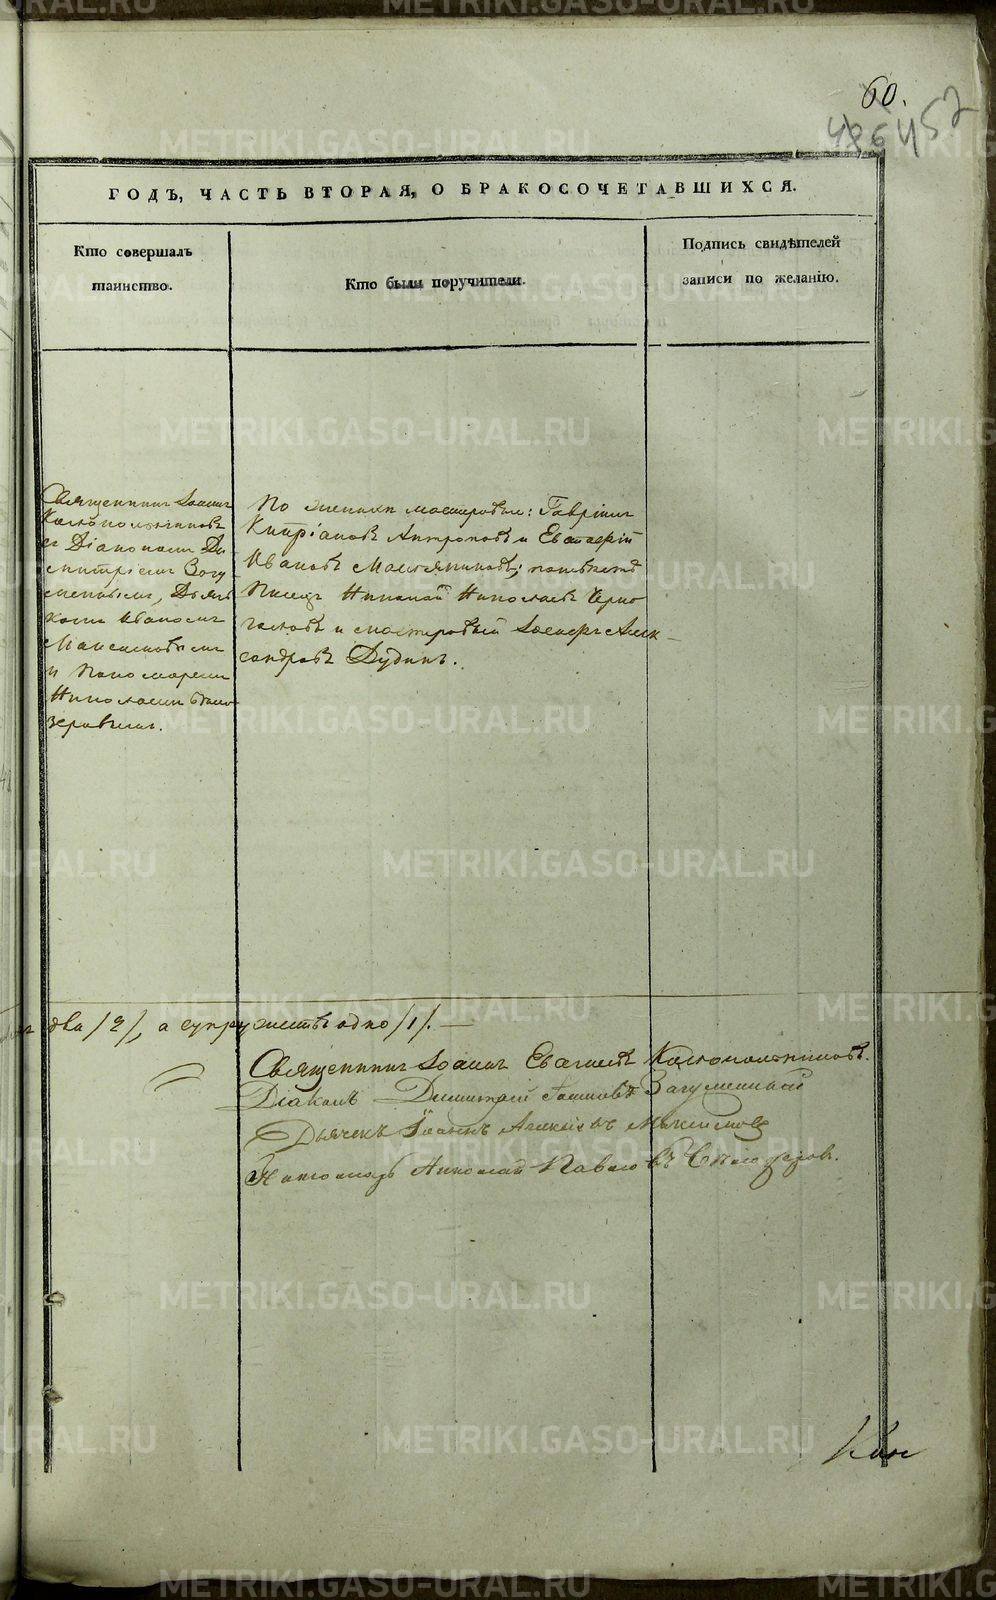 60.
486 4 52
ГОДЪ, ЧАСТЬ ВТОРАЯ, О БРАКОСОЧЕТАВШИХСЯ.
Кто совершалъ
таинство.
Кто были поручители.
Подпись свидѣтелей
записи по желанію.
Священникъ Іоаннъ
съ Діакономъ Ди
митріемъ Загу
меннымъ, Дьяч
комъ Иваномъ
Максимовымъ
и Пономаремъ
Николаемъ Бѣло
зеровымъ.
По женихѣ мастеровые: Гавріилъ
Кипріановъ Антроповъ и Евстафій
Ивановъ Масляниковъ; по невѣстѣ
Писецъ Николай Николаевъ Черно
головъ и мастеровый Іосифъ Алек-
сандровъ Дудинъ.
два /2/, а супружествъ одно /1/. —
Священникъ Іоаннъ Евгеніевъ
Діаконъ Димитрій Загуменный
Дьячекъ Іоаннъ Алексіевъ Максимовъ
Пономарь Николай Павловъ Бѣлозеровъ.
METRIKI.GASO-URAL.RU